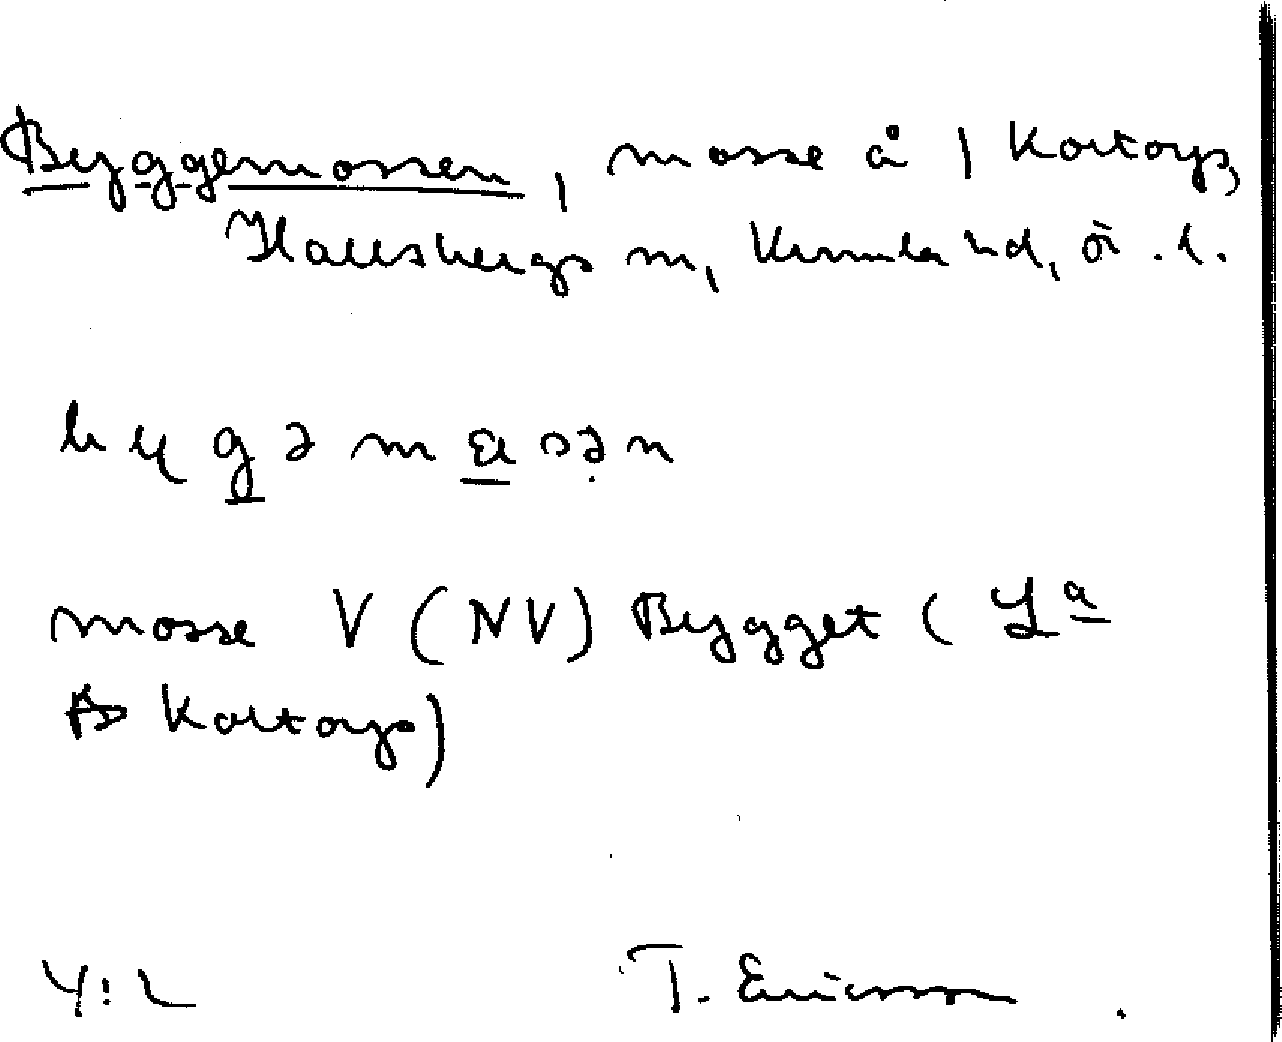 Byggemossen, mosse å 1 Kortorp,
Hallsbergs sn, Kumla hd, ör. l.
bygəmɑsən
mosse V (NV) Bygget (La
Kortorp)
4:2
T. Ericsson